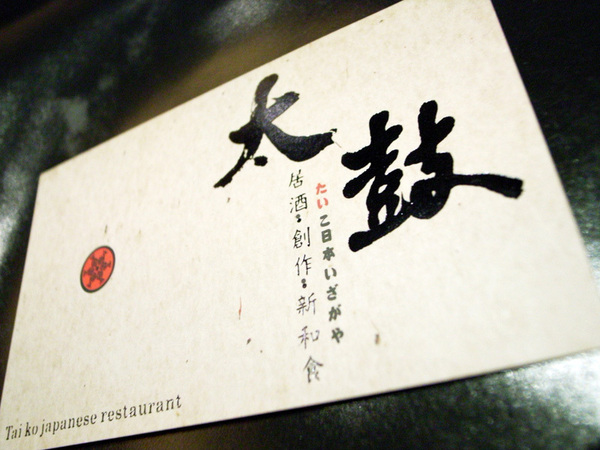 太鼓
たいこ日本いざがや
居酒:創作:新和食
Tai ko japanese restaurant